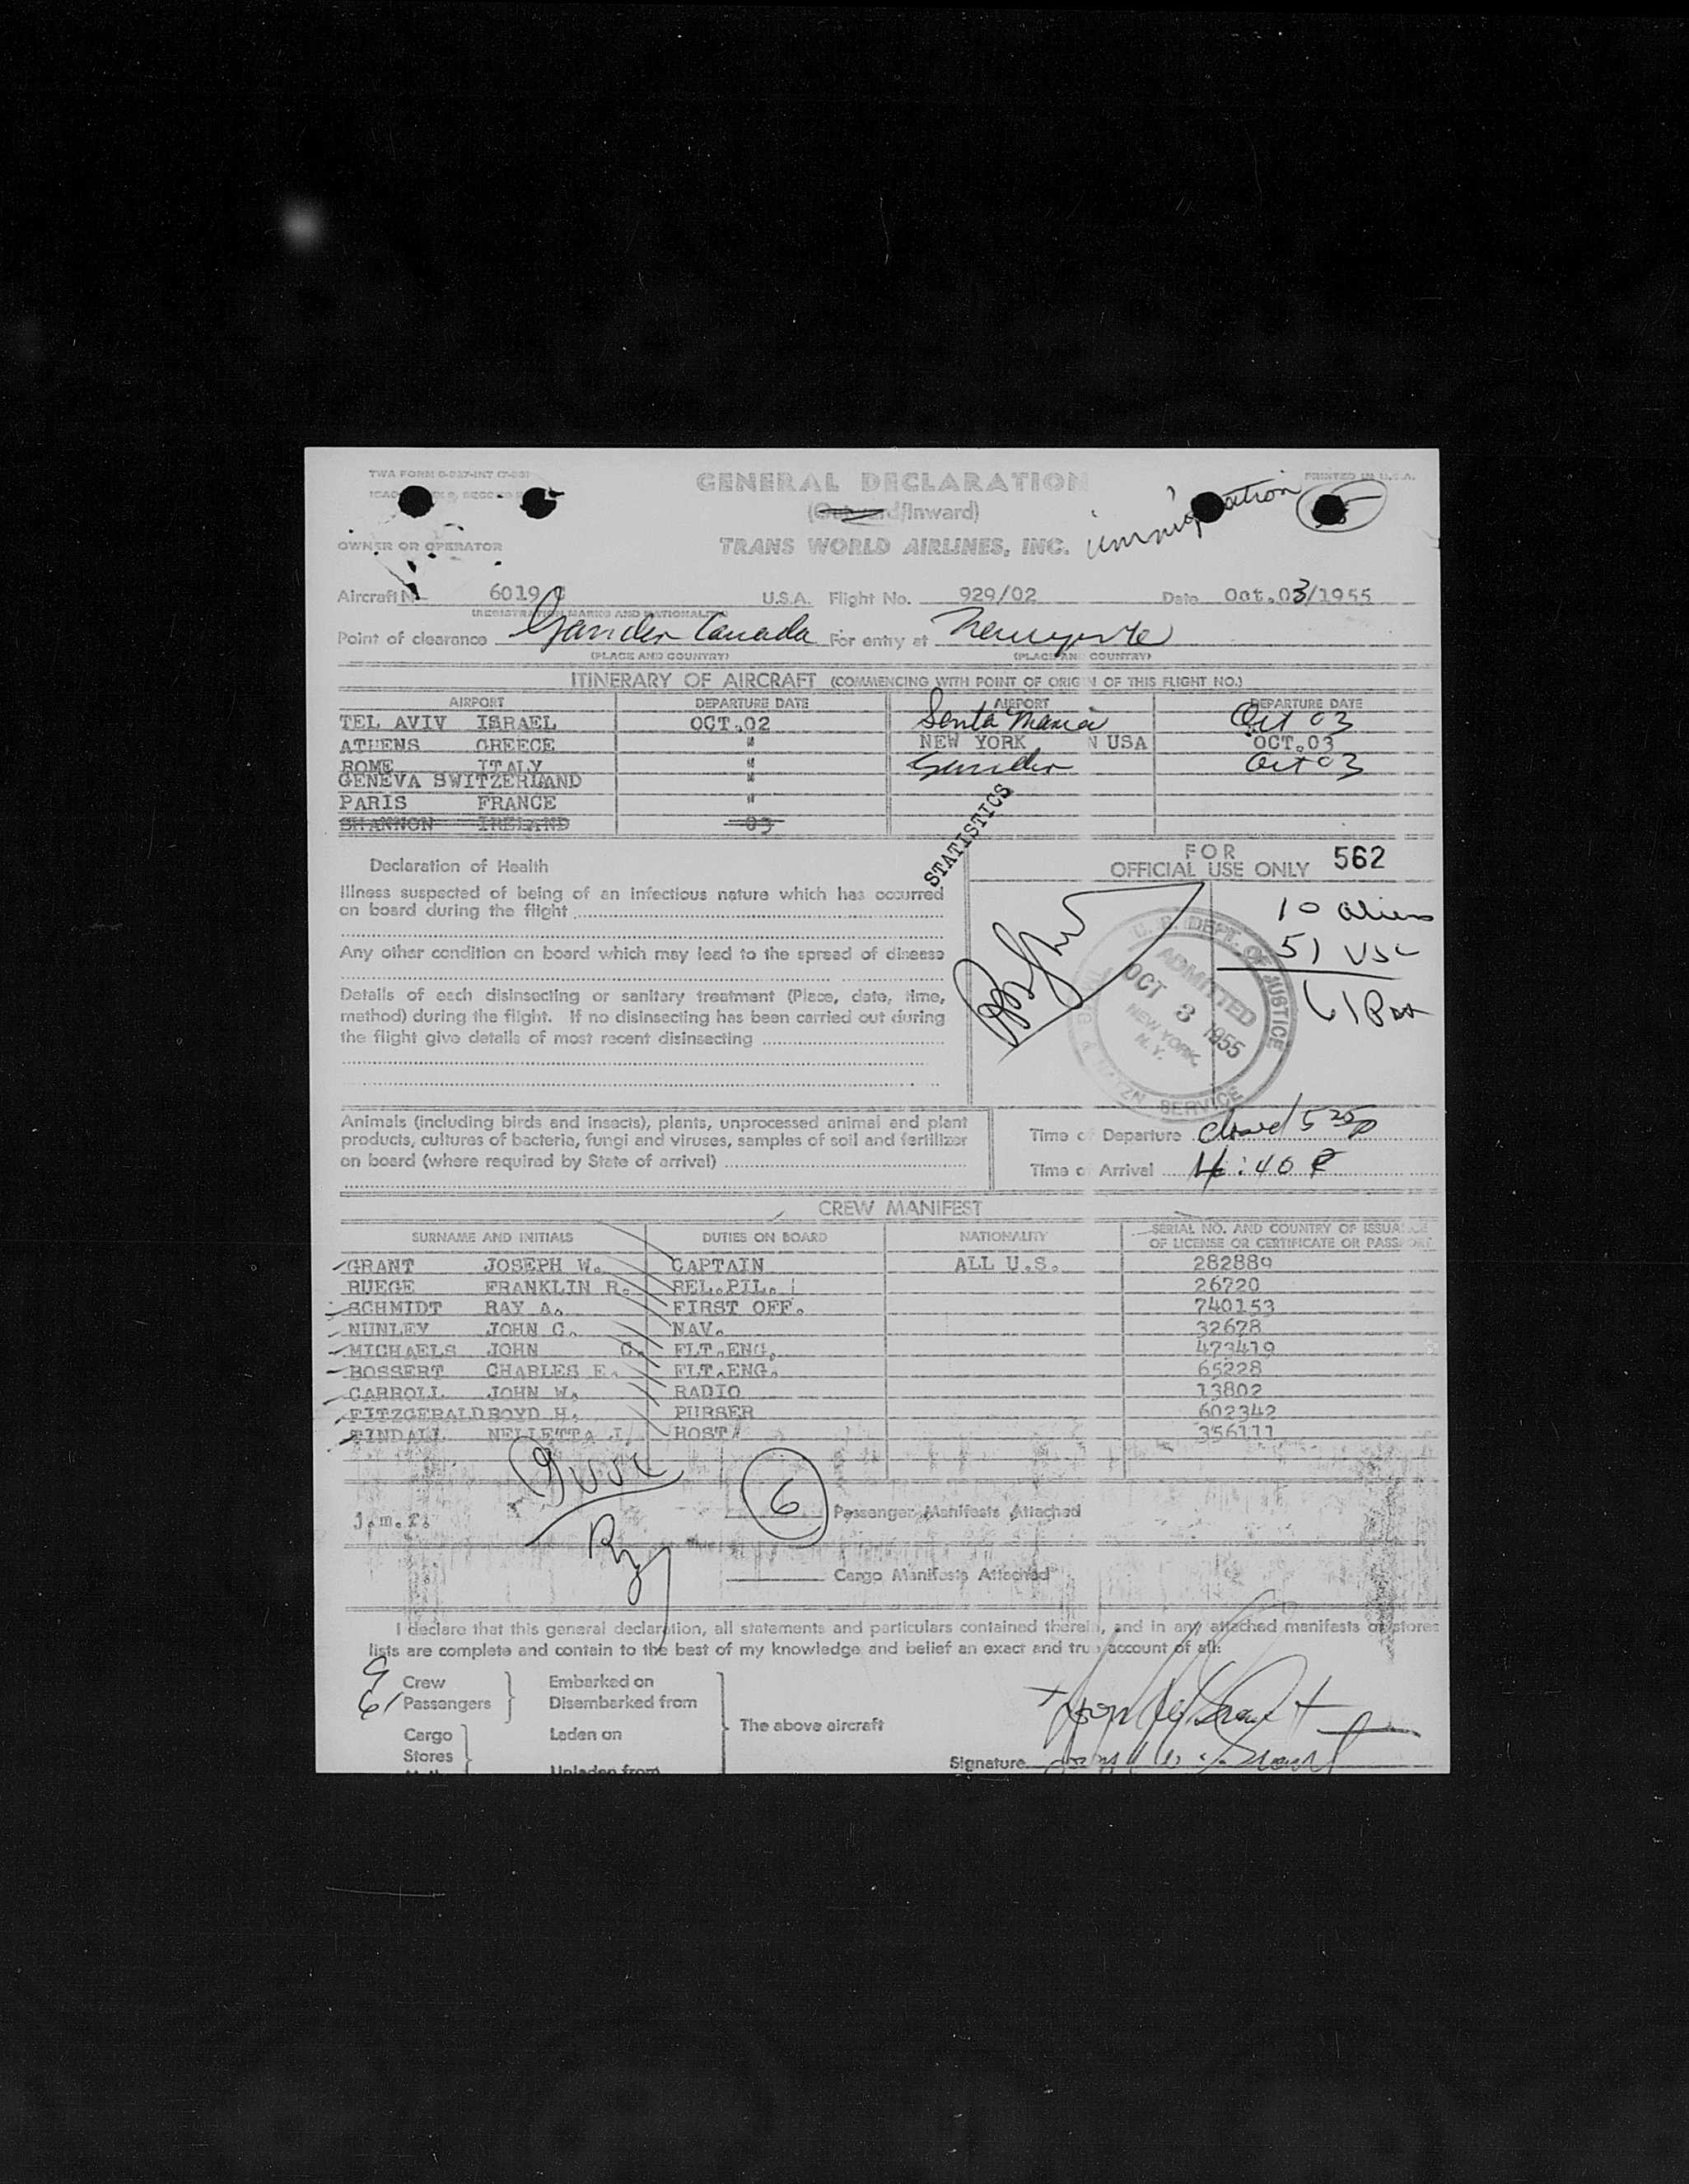 TWA FORM
GENERAL DECLARATION
PRINTED IN U.S.A.
(Outward/Inward)
immigration
OWNER OR OPERATOR
TRANS WORLD AIRLINES, INC.
Aircraft N 6019 C U.S.A. Flight No. 929/02 Date Oct.03/1955
(REGISTRATION MARKS AND NATIONALITY)
Point of clearance Gander Canada For entry at Newyork
(PLACE AND COUNTRY) (PLACE AND COUNTRY)
ITINERARY OF AIRCRAFT (COMMENCING WITH POINT OF ORIGIN OF THIS FLIGHT NO.)
AIRPORT DEPARTURE DATE AIRPORT DEPARTURE DATE
TEL AVIV ISRAEL OCT.02 Santa Maria Oct 03
ATHENS GREECE " NEW YORK N USA OCT.03
ROME ITALY " Gander Oct 03
GENEVA SWITZERLAND "
PARIS FRANCE "
SHANNON IRELAND 03
STATISTICS
Declaration of Health
FOR
OFFICIAL USE ONLY 562
Illness suspected of being of an infectious nature which has occurred
on board during the flight
Any other condition on board which may lead to the spread of disease
Details of each disinsecting or sanitary treatment (Place, date, time,
method) during the flight. If no disinsecting has been carried out during
the flight give details of most recent disinsecting
10 aliens
51 USC
61 Pax
U. S. DEPT. OF JUSTICE
ADMITTED
OCT 3 1955
NEW YORK,
N.Y.
SERVICE
Animals (including birds and insects), plants, unprocessed animal and plant
products, cultures of bacteria, fungi and viruses, samples of soil and fertilizer
on board (where required by State of arrival)
Time of Departure closed 5 25 p
Time of Arrival 4:40 P
CREW MANIFEST
SURNAME AND INITIALS DUTIES ON BOARD NATIONALITY SERIAL NO. AND COUNTRY OF ISSUANCE
OF LICENSE OR CERTIFICATE OR PASSPORT
GRANT JOSEPH W. CAPTAIN ALL U.S. 282889
RUEGE FRANKLIN R. REL.PIL. 26720
SCHMIDT RAY A. FIRST OFF. 740153
NUNLEY JOHN C. NAV. 32678
MICHAELS JOHN G. FLT.ENG. 473419
BOSSERT CHARLES E. FLT.ENG. 65228
CARROLL JOHN W. RADIO 13802
FITZGERALD BOYD H. PURSER 602342
TINDALL NELLETTA J. HOST 356111
9 USC
j.m.f.
6 Passenger Manifests Attached
Cargo Manifests Attached
I declare that this general declaration, all statements and particulars contained therein, and in any attached manifests or stores
lists are complete and contain to the best of my knowledge and belief an exact and true account of all:
9 Crew Embarked on
61 Passengers Disembarked from
Cargo Laden on The above aircraft
Stores
Unladen from
Signature Joseph W. Grant